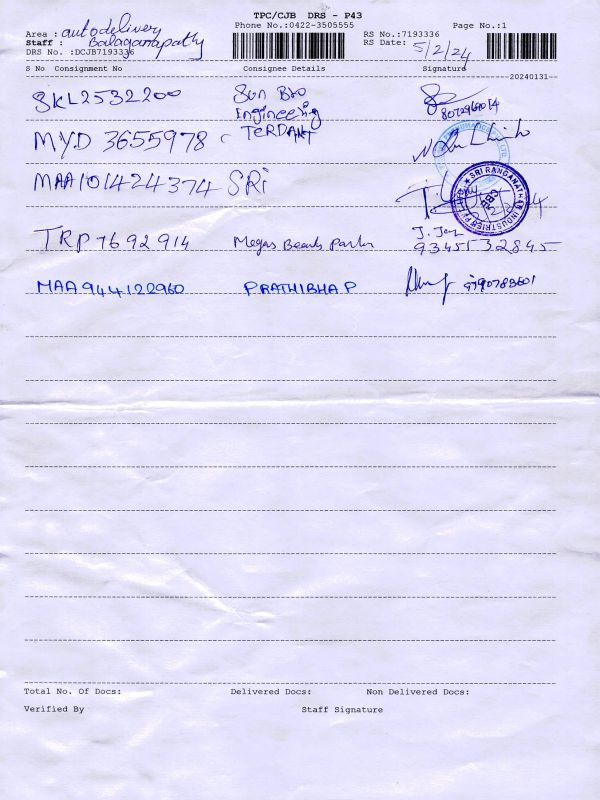 TPC/CJB DRS - P43
Area : autodelivery Phone No.:0422-3505555 RS No.:7193336 Page No.:1
Staff : Balaganapathy RS Date: 5/2/24
DRS No. :DCJB7193336
S No Consignment No Consignee Details Signature
20240131
SKL2532200 Sun Bro Engineering
MYD 3655978 TERDANT
MAA101424374 SRI
SRI RANGANATHAR INDUSTRIES CBE
TRP7692914 Megas Beauty Parlor J. Joy 9345532845
MAA944122960 PRATHIBHA P 9790783601
Total No. Of Docs: Delivered Docs: Non Delivered Docs:
Verified By Staff Signature